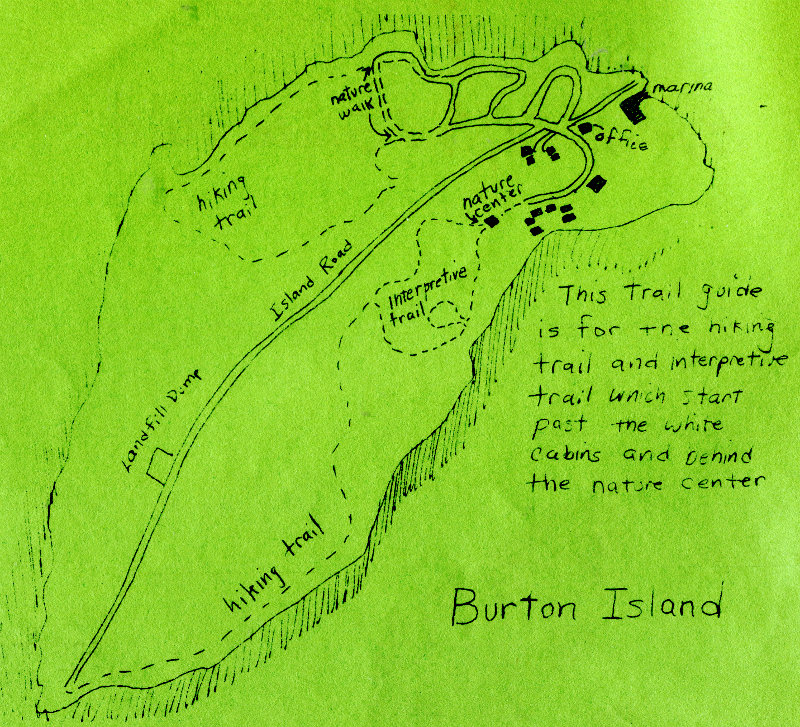 marina
nature
walk
office
hiking
trail
nature
center
Island Road
Interpretive
trail
This Trail guide
is for the hiking
trail and interpretive
trail which start
past the white
cabins and behind
the nature center
Landfill Dump
hiking trail
Burton Island